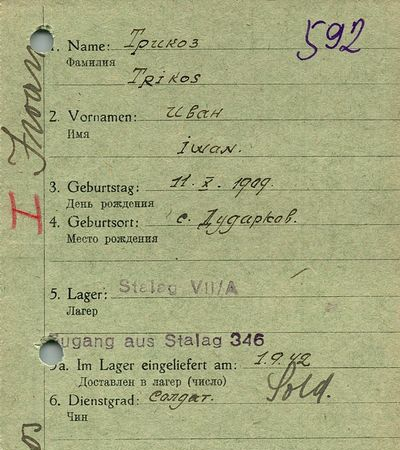 592
1. Name: Трикоз
Фамилия
Trikos
2. Vornamen: Иван
Имя
iwan.
3. Geburtstag: 11. X. 1909.
День рождения
4. Geburtsort: с. Дударков.
Место рождения
5. Lager: Stalag VII/A
Лагер
Zugang aus Stalag 346
5a. Im Lager eingeliefert am: 1.9.42
Доставлен в лагер (число)
6. Dienstgrad: солдат. Sold.
Чин
I